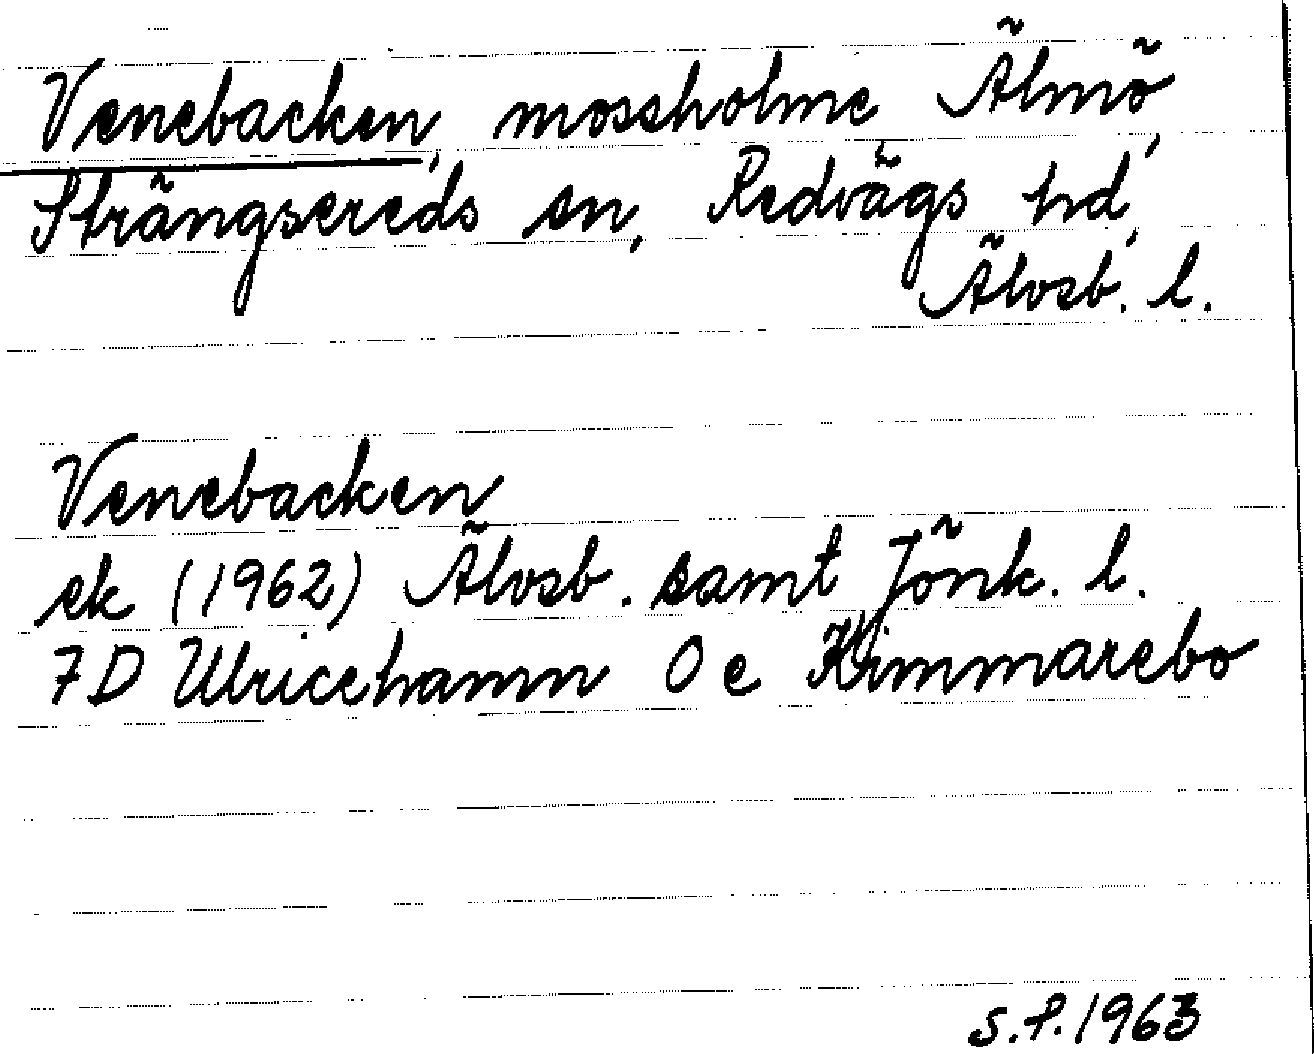 Venebacken, mossholme Älmö,
Strängsereds sn, Redvägs hd,
Älvsb. l.
Venebacken
ek (1962) Älvsb. samt Jönk. l.
7D Ulricehamn 0 e Kimmarebo
S.F. 1963